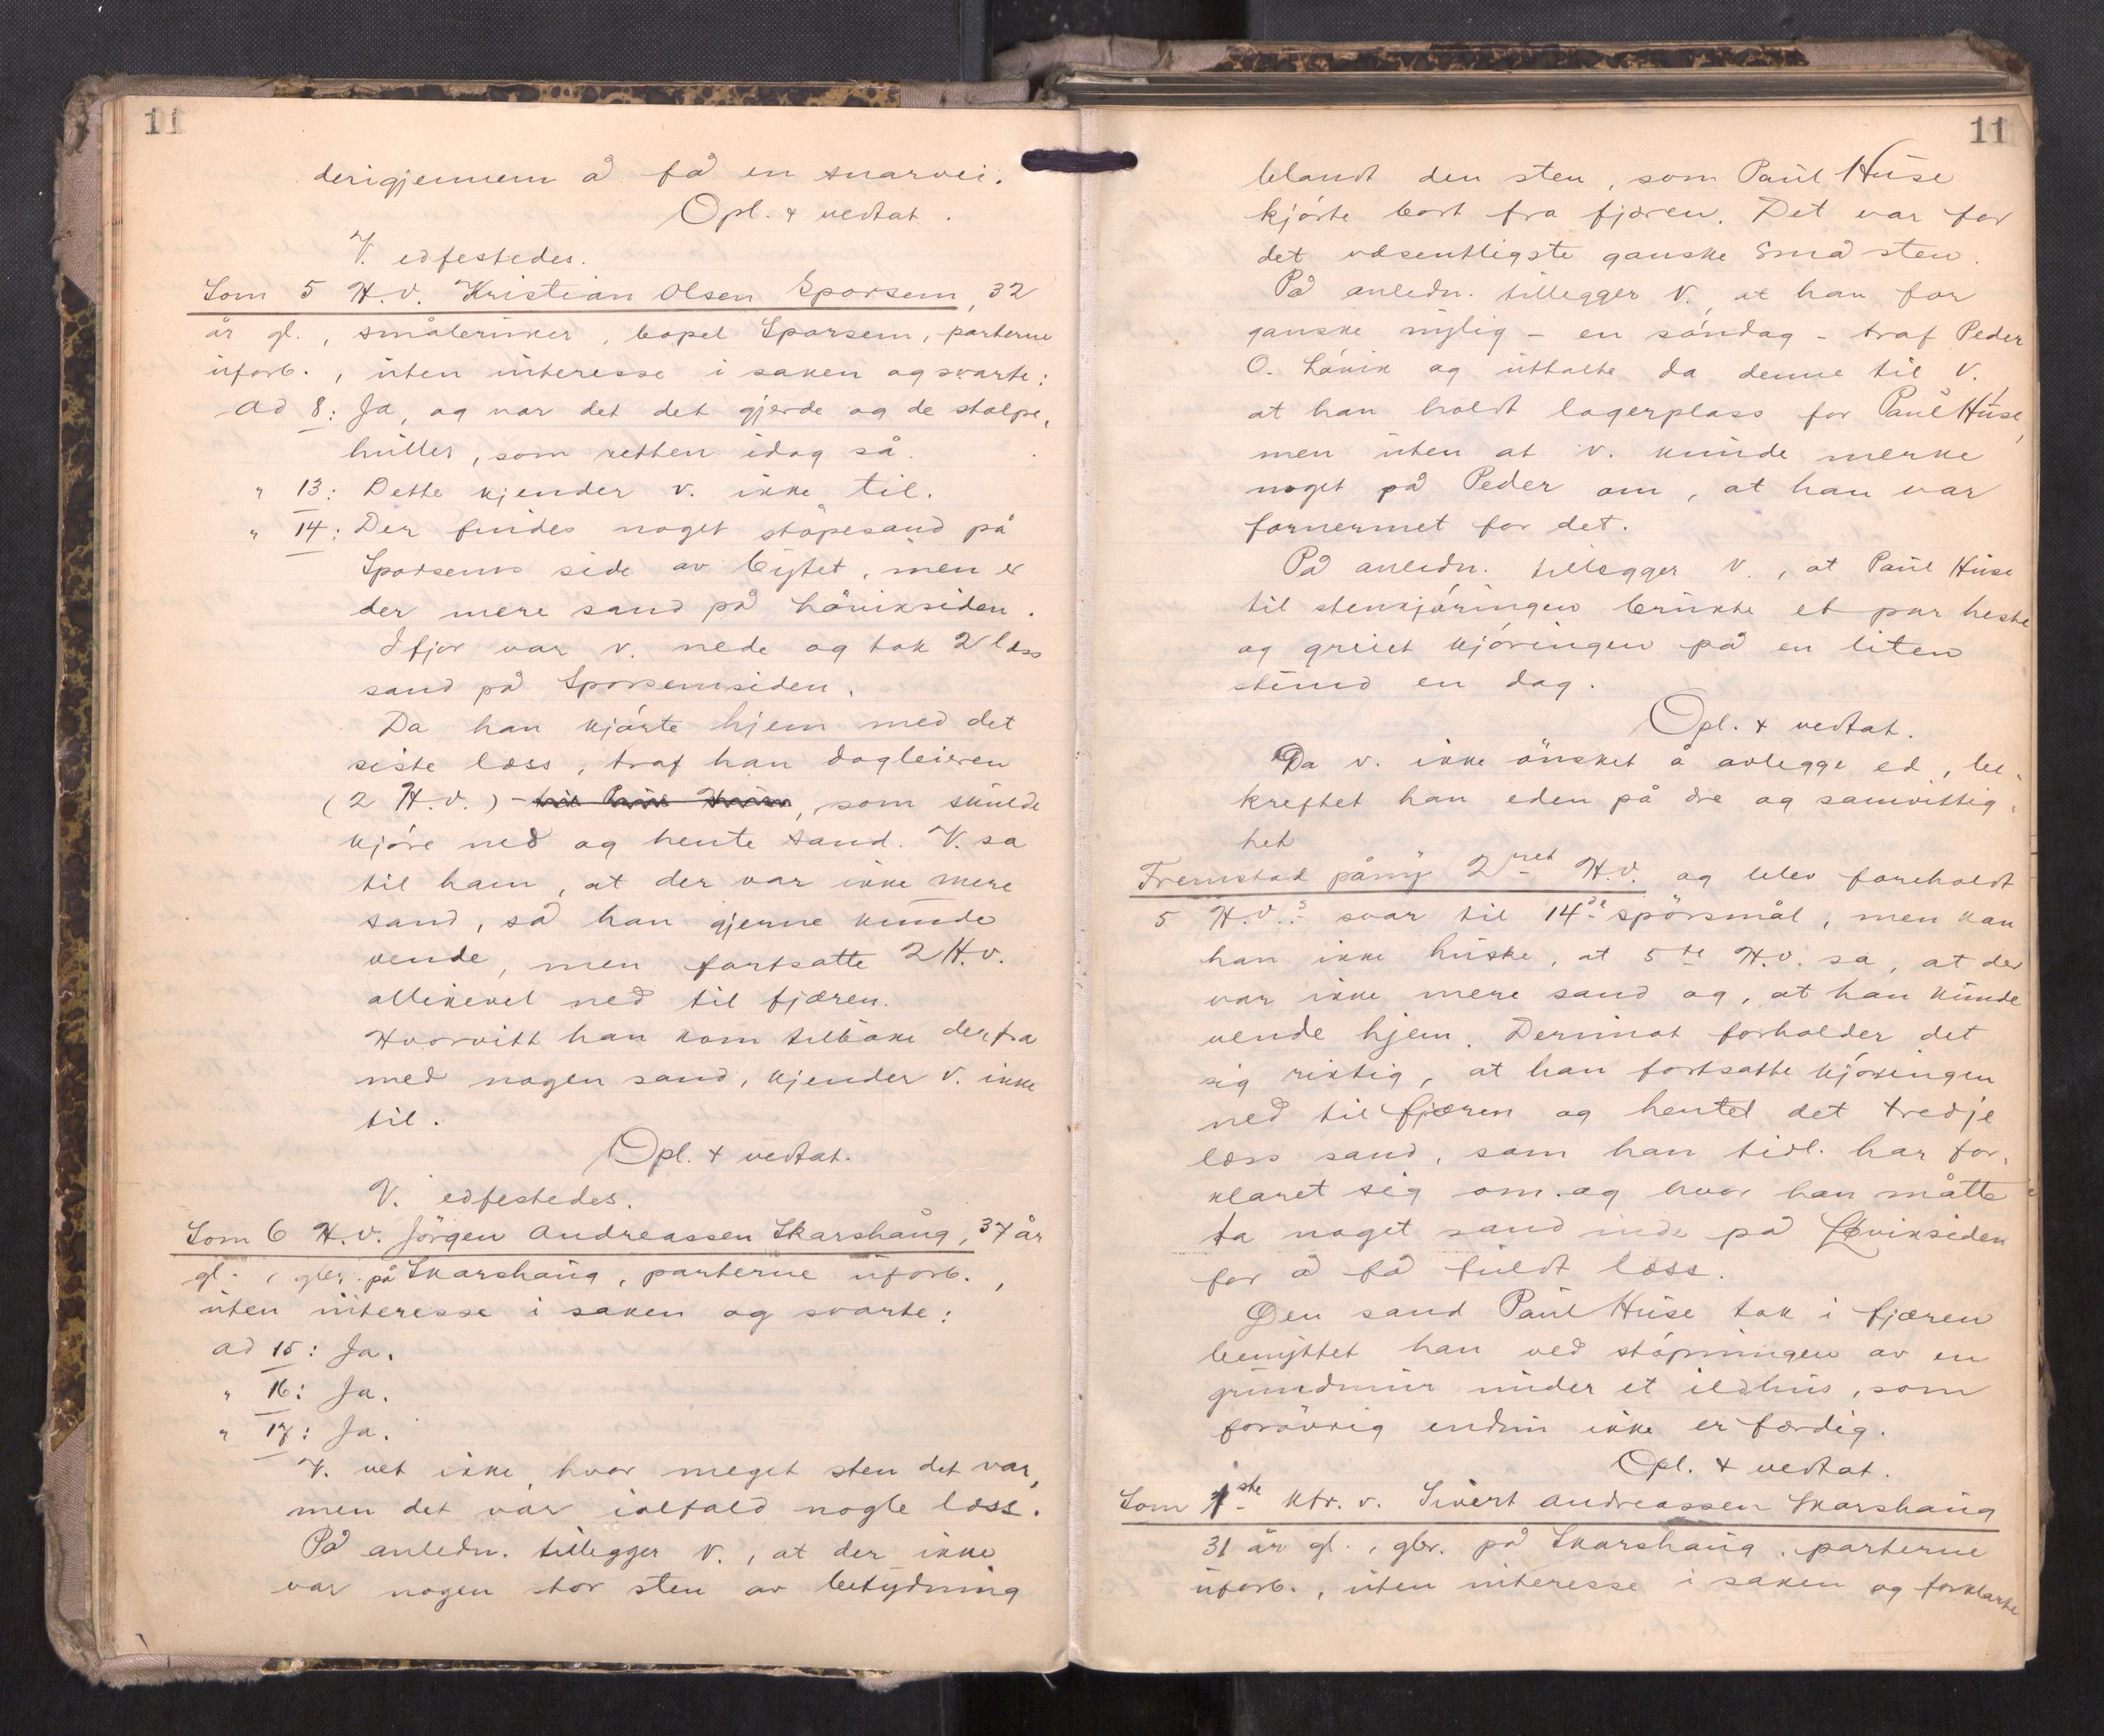 11
derigjennem å få en snarvei.
Opl. & vedtat.
V. edfestedes.
Som 5 H.V. Kristian Olsen Sporsem, 32
år gl., småbruker, bopel Sporsem, parterne
uforb., uten interesse i saken og svarte:
ad 8: Ja, og var det det gjerde og de stolpe-
huller, som retten idag så.
" 13: Dette kjender v. ikke til.
" 14: Der findes noget støpesand på
Sporsems side av bytet, men er
der mere sand på Løviksiden.
Ifjor var v. nede og tok 2 læss
sand på Sporsemsiden.
Da han kjørte hjem med det
siste læss, traf han dagleieren
(2 H.v.) - til Paul Huse, som skulde
kjøre ned og hente sand. V. sa
til ham, at der var ikke mere
sand, så han gjerne kunde
vende, men fortsatte 2 H.v.
allikevel ned til fjæren.
Hvorvitt han kom tilbake derfra
med nogen sand, kjender v. ikke
til.
Opl. & vedtat.
V. edfestedes.
Som 6 H.v. Jörgen Andreassen Skarshaug, 37 år
gl., gbr. på Skarshaug, parterne uforb.,
uten interesse i saken og svarte:
ad 15: Ja.
" 16: Ja.
" 17: Ja.
V. vet ikke hvor meget sten det var,
men det var ialfald nogle læss.
På anledn. tillegger v., at der ikke
var nogen stor sten av betydning
11
blandt den sten, som Paul Huse
kjørte bort fra fjæren. Det var for
det væsentligste ganske små sten.
På anledn. tillegger V., at han for
ganske nylig - en søndag - traf Peder
O. Løvik og uttalte da denne til V.
at han holdt lagerplass for Paul Huse,
men uten at v. kunde merke
noget på Peder om, at han var
fornermet for det.
På anledn. tillegger V., at Paul Huse
til stenkjøringen brukte et par heste
og greiet kjøringen på en liten
stund en dag.
Opl. & vedtat.
Da v. ikke ønsket å avlegge ed, be-
kreftet han eden på ære og samvittig-
het
Fremstod påny 2net H.V. og blev foreholdt
5 H.V.s svar til 14de spörsmål, men kan
han ikke huske, at 5te H.v. sa, at der
var ikke mere sand og, at han kunde
vende hjem. Derimot forholder det
sig riktig, at han fortsatte kjøringen
ned til fjæren og hentet det tredje
læss sand, som han tidl. har for-
klaret sig om og hvor han måtte
ta noget sand inde på Løviksiden
for å få fuldt læss.
Den sand Paul Huse tok i fjæren
benyttet han ved støpningen av en
grundmur under et ildhus, som
forövrig endnu ikke er færdig.
Opl. & vedtat.
Som 1ste ktr. v. Sivert Andreassen Skarshaug
31 år gl., gbr. på Skarshaug, parterne
uforb., uten interesse i saken og forklarte